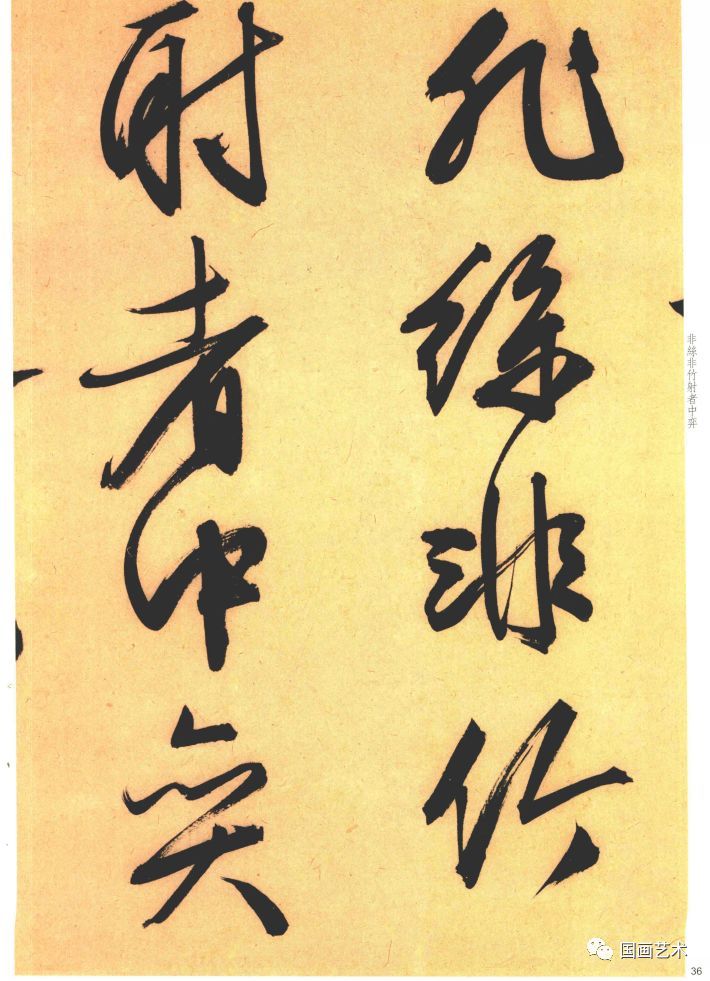 非絲非竹
射者中弈
非絲非竹射者中弈
国画艺术
36